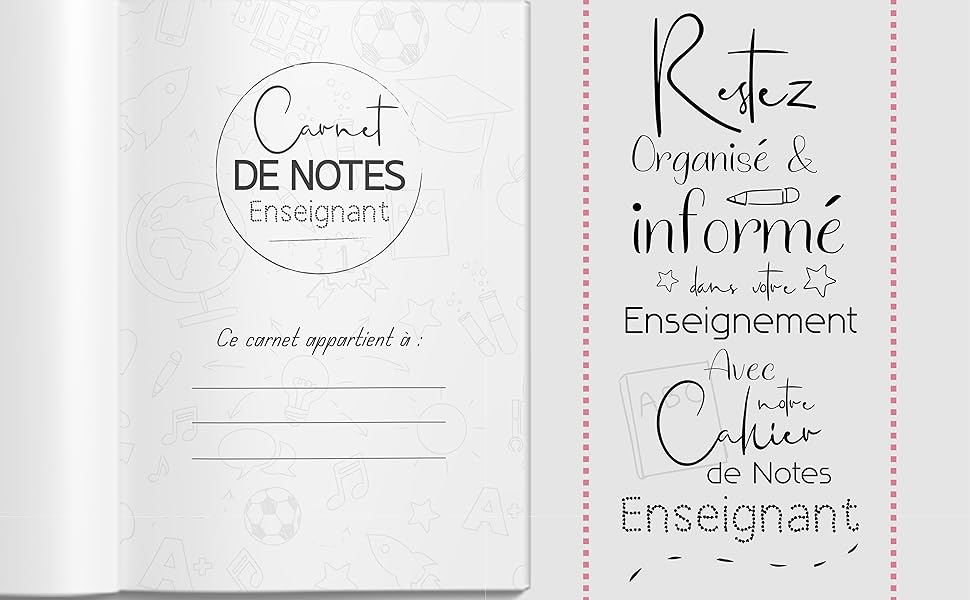 Carnet
DE NOTES
Enseignant
ABC
1
A+
Ce carnet appartient à :
A+
Restez
Organisé &
informé
dans votre
Enseignement
Avec
ABC
notre
Cahier
de Notes
Enseignant